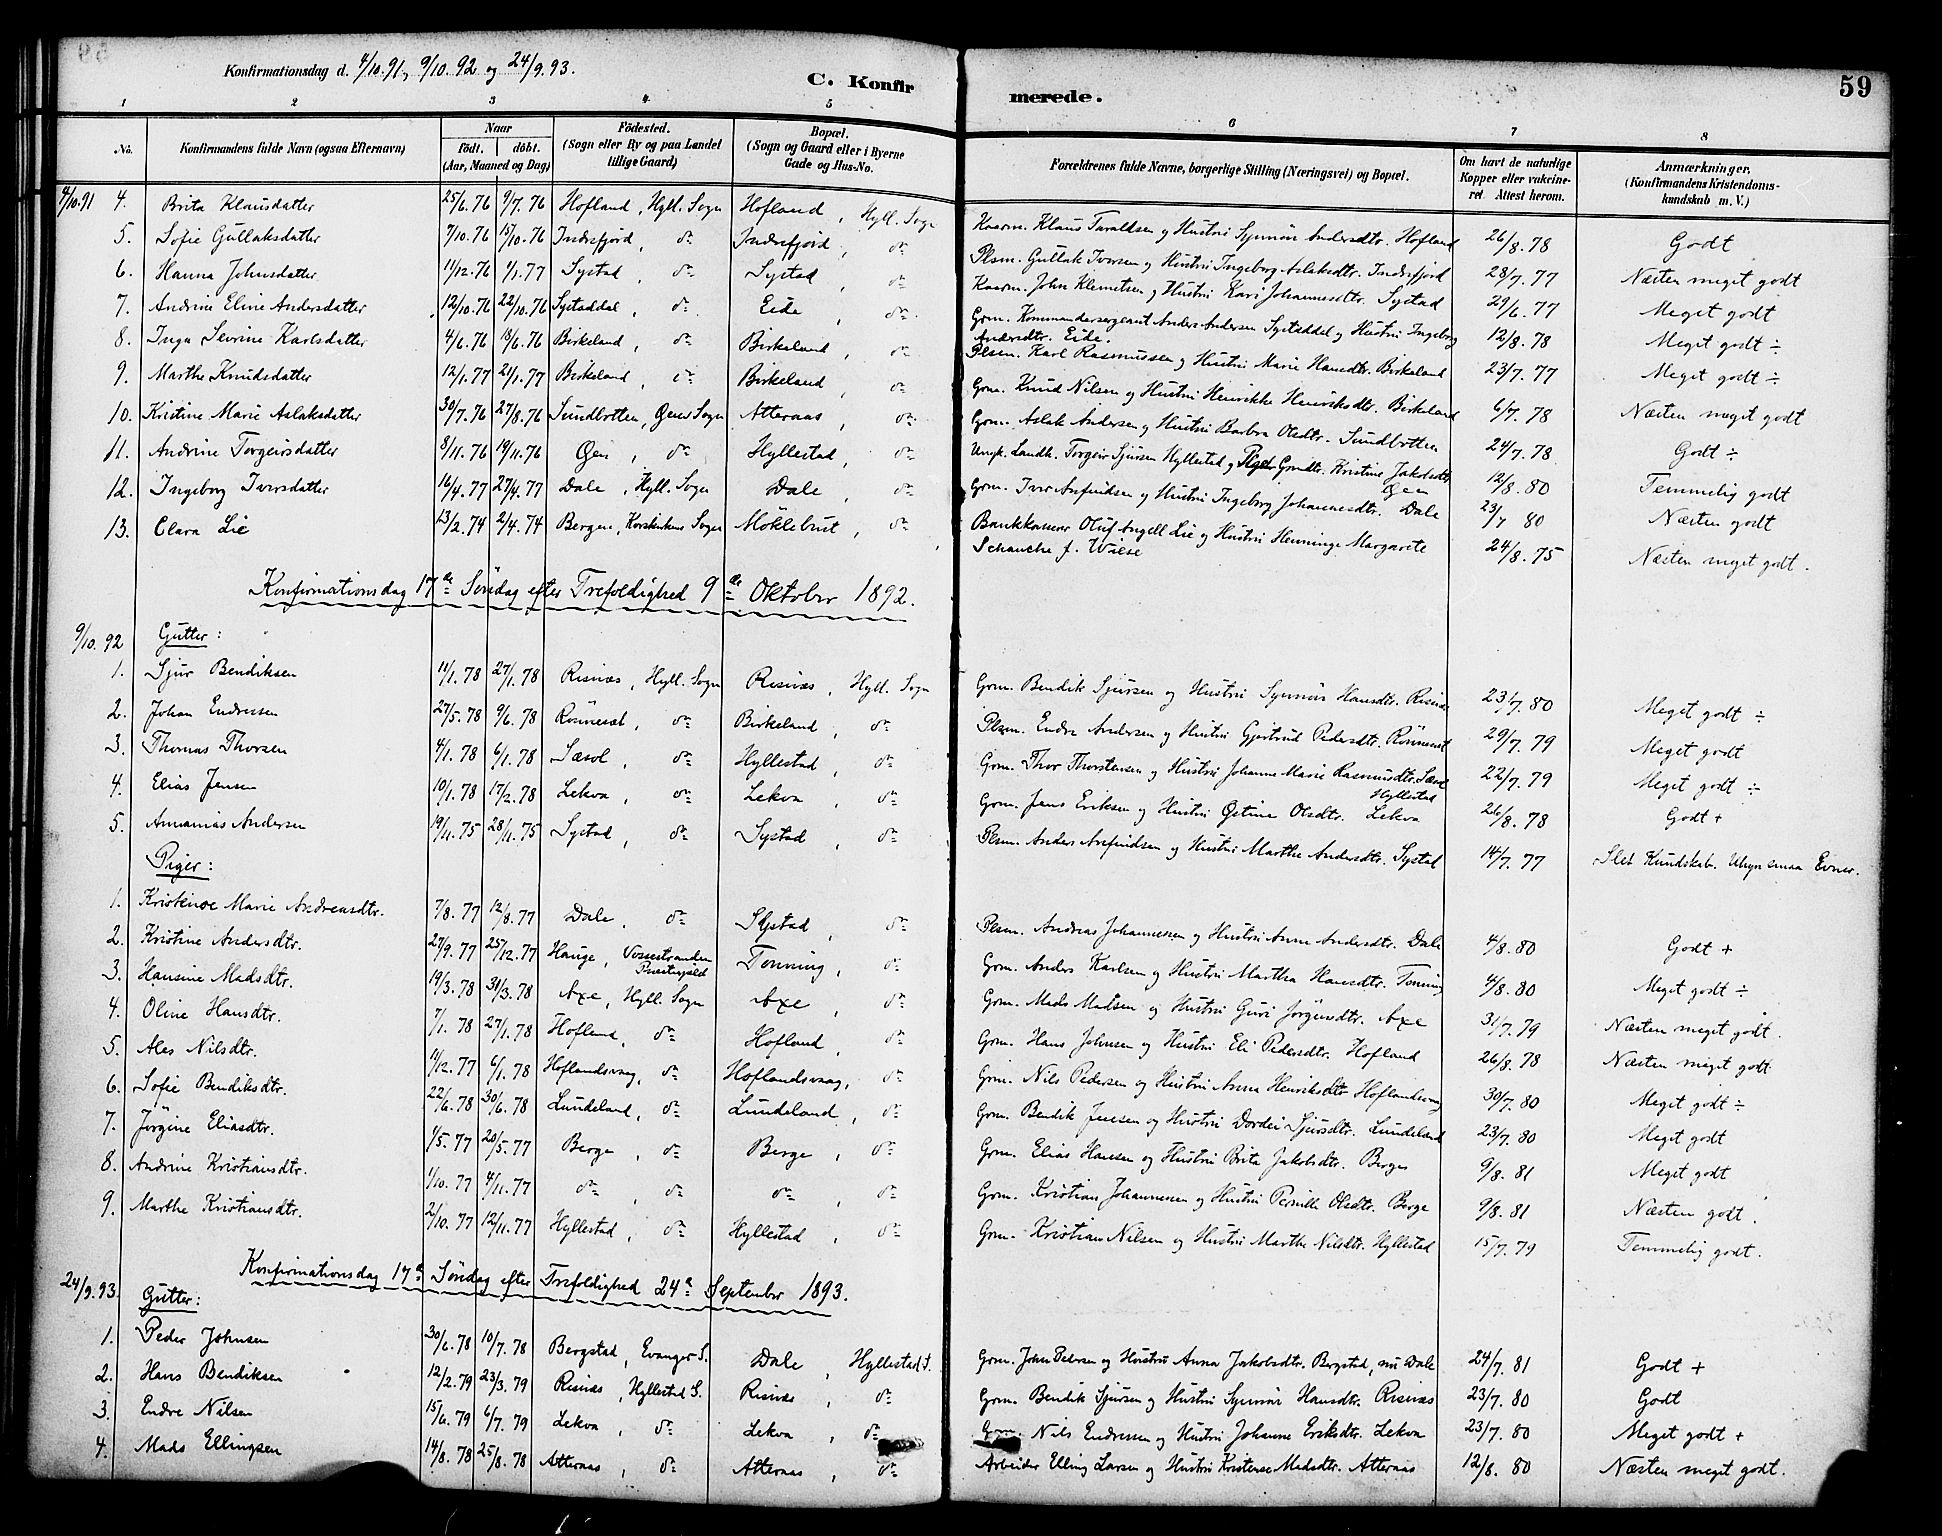 Konfirmationsdag d. 4/10.91, 9/10.92 og 24/9.93.
C. Konfirmerede.
59
1 2 3 4 5 6 7 8
No. | Konfirmandens fulde Navn (ogsaa Efternavn) | Naar födt. döbt. (Aar, Maaned og Dag) | Födested. (Sogn eller By og paa Landet tillige Gaard) | Bopæl. (Sogn og Gaard eller i Byerne Gade og Hus-No. | Forældrenes fulde Navne, borgerlige Stilling (Næringsvei) og Bopæl. | Om havt de naturlige Kopper eller vakcineret. Attest herom. | Anmærkninger. (Konfirmandens Kristendomskundskab m. V.)
4/10.91 4. Brita Klausdatter 25/6.76 9/7.76 Hofland, Hyll. Sogn Hofland, Hyll. Sogn Klaus Taraldsen og Hustru Synnöv Andersdtr. Hofland 26/8.78 Godt
5. Sofie Gullaksdatter 7/10.76 15/10.76 Indrefjord, do Indrefjord, do Plsm. Gullak Iversen og Hustru Ingeborg Aslaksdtr. Indrefjord 28/7.77 Næsten meget godt
6. Hanna Johnsdatter 11/12.76 1/1.77 Systad, do Systad, do John Klemetsen og Hustru Kari Johannesdtr. Systad 29/6.77 Meget godt
7. Andrine Eline Andersdatter 12/10.76 22/10.76 Systaddal, do Eide, do Grm. Kommandersergeant Anders Andersen Systaddal og Hustru Ingeborg Andersdtr. Eide. 12/8.78 Meget godt ÷
8. Inga Severine Karlsdatter 4/6.76 18/6.76 Birkeland, do Birkeland, do Plsm. Karl Rasmussen og Hustru Marie Hansdtr. Birkeland 23/7.77 Meget godt ÷
9. Marthe Knudsdatter 12/1.77 21/1.77 Birkeland, do Birkeland, do Grm. Knud Nilsen og Hustru Henrikke Henriksdtr. Birkeland 6/7.78 Næsten meget godt
10. Kristine Marie Aslaksdatter 30/7.76 27/8.76 Sundbotten, Öens Sogn Atteraas, do Grm. Aslak Andersen og Hustru Barbra Olsdtr. Sundbotten 24/7.78 Godt ÷
11. Andrine Torgeirsdatter 8/11.76 19/11.76 Öen, do Hyllestad, do Ungk. Landh. Torgeir Sjursen Hyllestad og Pige Grmdtr. Kristine Jakobsdtr. Öen 12/8.80 Temmelig godt
12. Ingeborg Iversdatter 16/4.77 27/4.77 Dale, Hyll. Sogn Dale, do Grm. Iver Arnfindsen og Hustru Ingeborg Johannesdtr. Dale 23/7 80 Næsten godt
13. Clara Lie 13/2.74 2/4.74 Bergen, Korskirkens Sogn Möklebust, do Bankkasserer Oluf Angell Lie og Hustru Henninge Margarete Schanche f. Wiese 24/8.75 Næsten meget godt.
Konfirmationsdag 17de Söndag efter Trefoldighed 9de Oktober 1892.
9/10.92 Gutter:
1. Sjur Bendiksen 11/1.78 27/1.78 Risnæs, Hyll. Sogn Risnæs, Hyll. Sogn Grm. Bendik Sjursen og Hustru Synnöv Hansdtr. Risnæs 23/7.80 Meget godt ÷
2. Johan Endresen 27/5.78 9/6.78 Rönneset, do Birkeland, do Plsm. Endre Andersen og Hustru Gjertrud Pedersdtr. Rönneset 29/7.79 Meget godt
3. Thomas Thorsen 4/1.78 6/1.78 Sæsol, do Hyllestad, do Grm. Thor Thorstensen og Hustru Johanne Marie Rasmusdtr. Sæsol Hyllestad 22/7.79 Meget godt ÷
4. Elias Jensen 10/1.78 17/2.78 Lekva, do Lekva, do Grm. Jens Eriksen og Hustru Östine Olsdtr. Lekva 26/8.78 Godt +
5. Annanias Andersen 19/11.75 28/11.75 Systad, do Systad, do Plsm. Anders Arnfindsen og Hustru Marthe Andersdtr. Systad 14/7.77 Slet Kundskab. Uhyre smaa Evner.
Piger:
1. Kristense Marie Andreasdtr. 7/8.77 12/8.77 Dale, do Systad, do Plsm. Andreas Johannessen og Hustru Anne Andersdtr. Dale 4/8.80 Godt +
2. Kristine Andersdtr. 27/9.77 25/12.77 Hauge, Vossestrandens Præstegjæld Tonning, do Grm. Anders Karlsen og Hustru Martha Hansdtr. Tonning 4/8.80 Meget godt ÷
3. Hansine Madsdtr. 19/3.78 31/3.78 Axe, Hyll. Sogn Axe, do Grm. Mads Madsen og Hustru Guri Jörgensdtr. Axe 31/7.79 Næsten meget godt.
4. Oline Hansdtr. 7/1.78 27/1.78 Hofland, do Hofland, do Grm. Hans Johnsen og Hustru Eli Pedersdtr. Hofland 26/8.78 Næsten meget godt
5. Ales Nilsdtr. 11/12.77 6/1.78 Hoflandsvaag, do Hoflandsvaag, do Grm. Nils Pedersen og Hustru Anna Henriksdtr Hoflandsvaag 30/7.80 Meget godt ÷
6. Sofie Bendiksdtr. 22/6.78 30/6.78 Lundeland, do Lundeland, do Grm. Bendik Jensen og Hustru Dordei Sjursdtr. Lundeland 23/7.80 Meget godt
7. Jörgine Eliasdtr. 1/5.77 20/5.77 Berge, do Berge, do Grm. Elias Hansen og Hustru Brita Jakobsdtr. Berge 9/8.81 Meget godt
8. Andrine Kristiansdtr. 1/10.77 4/11.77 do, do do, do Grm. Kristian Johannessen og Hustru Pernille Olsdtr. Berge 9/8.81 Næsten godt.
9. Marthe Kristiansdtr. 2/10.77 12/11.77 Hyllestad, do Hyllestad, do Grm. Kristian Nilsen og Hustru Marthe Nilsdtr. Hyllestad 15/7.79 Temmelig godt.
Konfirmationsdag 17de Söndag efter Trefoldighed 24de September 1893.
24/9.93. Gutter:
1. Peder Johnsen 30/6.78 10/7.78 Bergstad, Evanger S. Dale, Hyllestad S. Grm. John Pedersen og Hustru Anna Jakobsdtr. Bergstad, nu Dale 24/7.81 Godt +
2. Hans Bendiksen 12/2.79 23/3.79 Risnæs, Hyllestad S. Risnæs, do Grm. Bendik Sjursen og Hustru Synnöv Hansdtr. Risnæs 23/7.80 Godt
3. Endre Nilsen 15/6.79 6/7.79 Lekva, do Lekva, do Grm. Nils Endresen og Hustru Johanne Eriksdtr. Lekva 23/7.80 Meget godt +
4. Mads Ellingsen 14/8.78 25/8.78 Atteraas, do Atteraas, do Arbeider Elling Larsen og Hustru Kristense Madsdtr. Atteraas 12/8.80 Næsten meget godt.